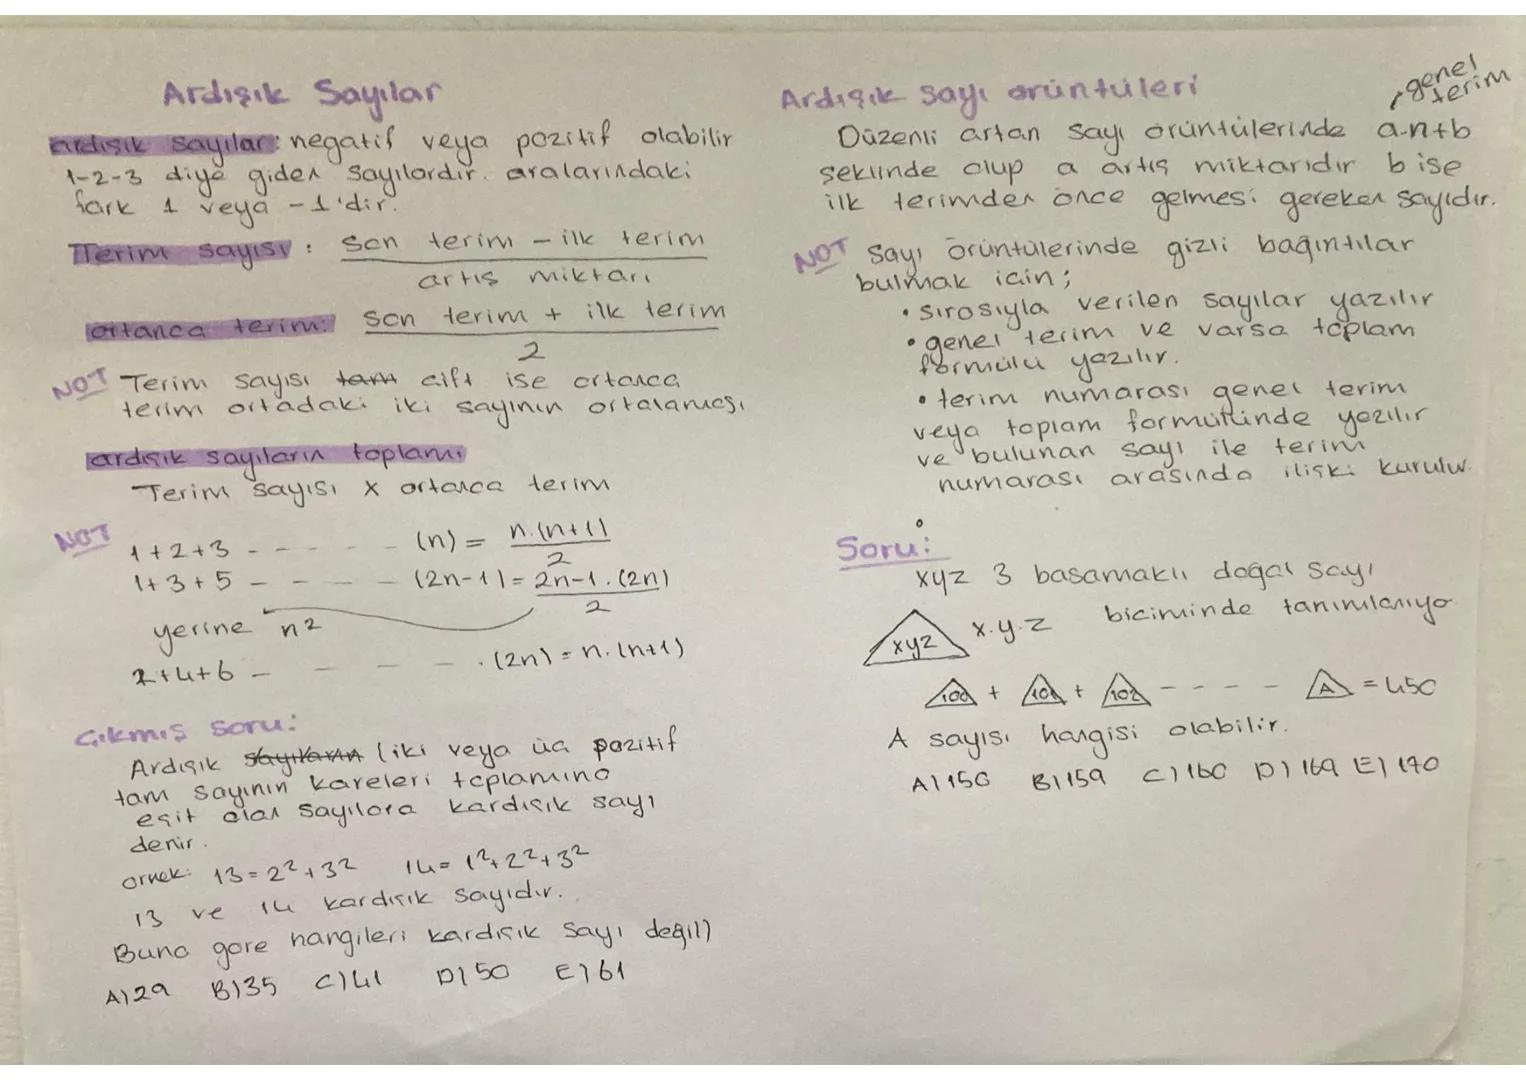 Ardışık Sayılar
ardışık sayılar: negatif veya pozitif olabilir
1-2-3 diye giden sayılardır. aralarındaki
fark 1 veya -1'dir.
Terim sayısı : son terim - ilk terim
artış miktarı
ortanca terim: son terim + ilk terim
2
NOT Terim sayısı tam çift ise ortanca
terim ortadaki iki sayının ortalaması
ardışık sayıların toplamı
Terim sayısı x ortanca terim
NOT
1+2+3 - - - - - - (n) = n.(n+1)
2
1+3+5 - - - - - (2n-1) = 2n-1.(2n)
2
yerine n²
2+4+6 - - - - - . (2n) = n.(n+1)
Çıkmış soru:
Ardışık sayıların (iki veya üç pozitif
tam sayının kareleri toplamına
eşit olan sayılara kardışık sayı
denir.
örnek: 13=2²+3² 14= 1²+2²+3²
13 ve 14 kardışık sayıdır.
Buna göre hangileri kardışık sayı değil)
A)29 B)35 C)41 D)50 E)61
Ardışık sayı örüntüleri
genel
terim
Düzenli artan sayı örüntülerinde a.n+b
şeklinde olup a artış miktarıdır b ise
ilk terimden önce gelmesi gereken sayıdır.
NOT Sayı örüntülerinde gizli bağıntılar
bulmak için;
• sırasıyla verilen sayılar yazılır
• genel terim ve varsa toplam
formülü yazılır.
• terim numarası genel terim
veya toplam formülünde yazılır
ve bulunan sayı ile terim
numarası arasında ilişki kurulur.
Soru:
xyz 3 basamaklı doğal sayı
xyz x.y.z biçiminde tanımlanıyo
100 + 101 + 102 - - - - A = 450
A sayısı hangisi olabilir.
A)150 B)159 C)160 D)169 E)170